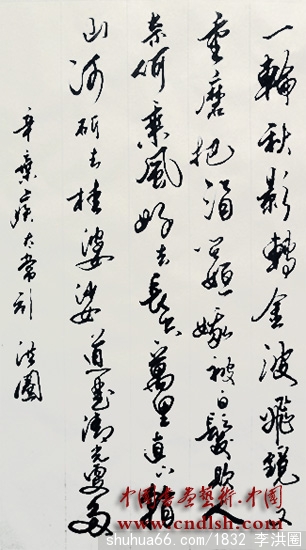 一輪秋影轉金波飛鏡又
重磨把酒問姮娥被白髮欺人
奈何乘風好去長空萬里直下看
山河斫去桂婆娑道是清光更多
辛棄疾太常引 洪圈
中國書畫藝術.中国
www.cndlsh.com
shuhua66.com/1832 李洪圈